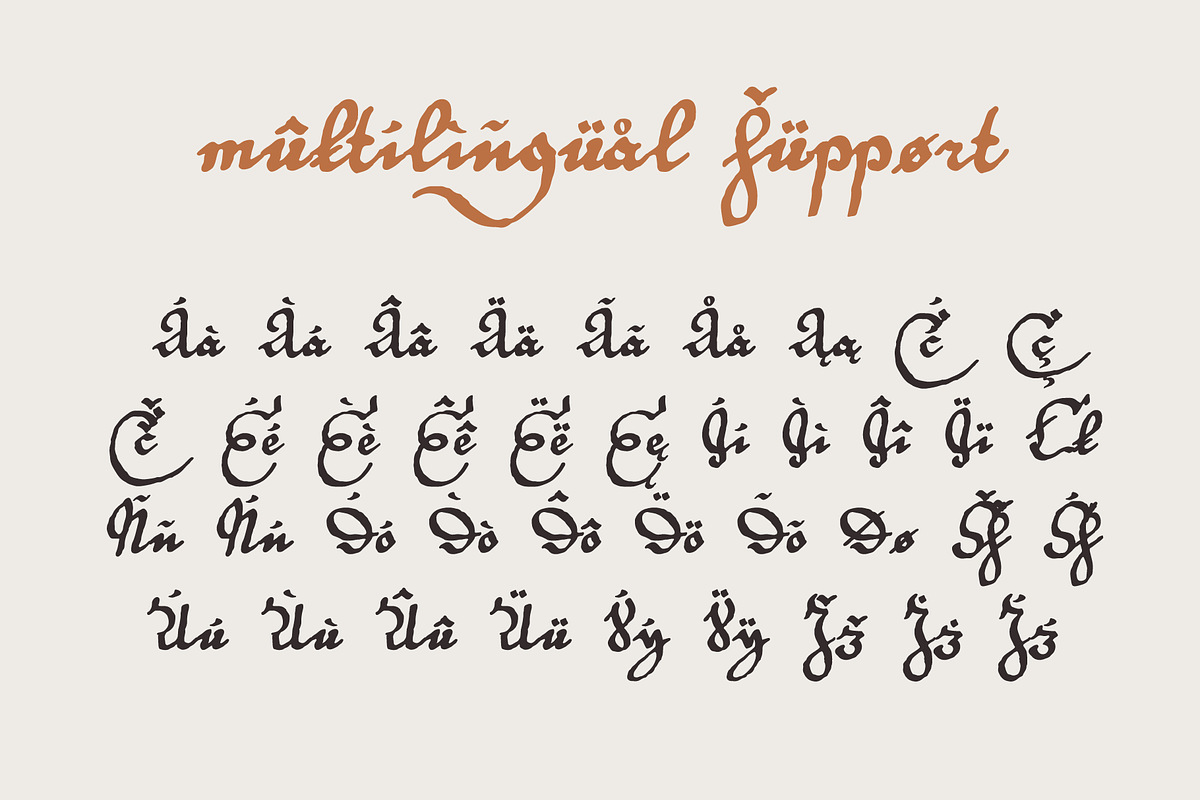 mûłtílìñgüål šüppørt
Áà Àá Ââ Ää Ãã Åå Ąą Ćć Çç
Čč Éé Èè Êê Ëë Ęę Íí Ìì Îî Ïï Łł
Ññ Ńń Óó Òò Ôô Öö Õõ Øø Šš Śś
Úú Ùù Ûû Üü Ýý Ÿÿ Žž Żż Źź